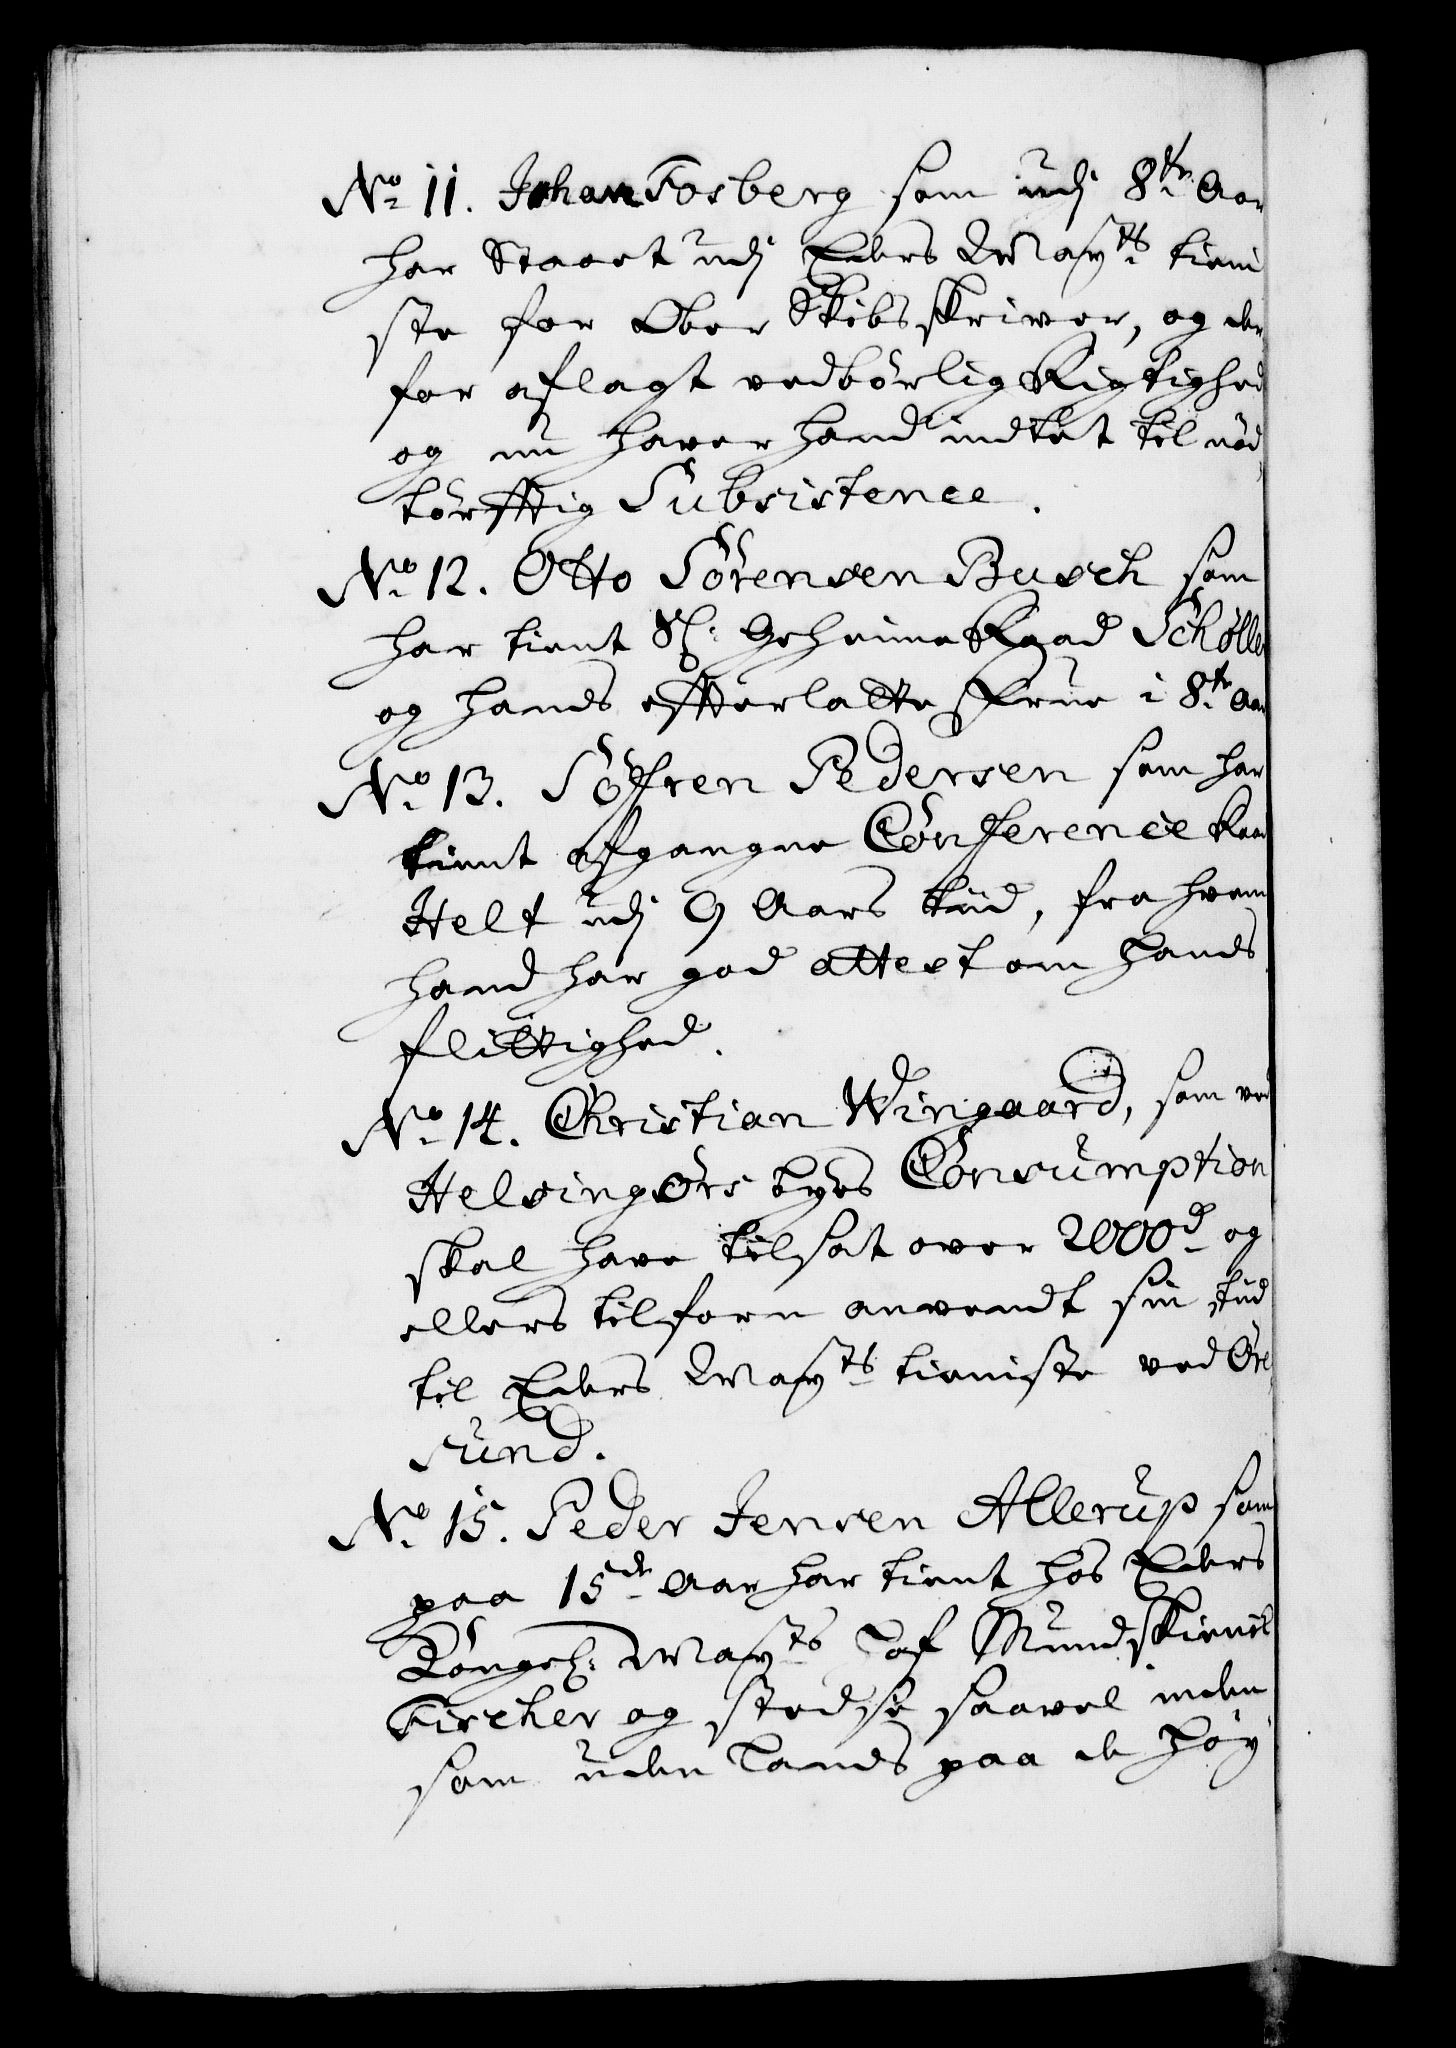 No 11. Johan Fosberg som udj 8te Aar
har Staaet udj Eders Maÿts tieni
ste for Ober Skibsskriver, og der
for aflagt vedbörlig Rigtighed
og nu haver hand indtet til nöd
törfftig Subsistence.
No 12. Otto Sörensen Busch som
har tient Sl: Geheime Raad Schøller
og hands efterlatte Frue i 8te Aar
No 13. Söffren Pedersen som har
tient afgangne Conference Raad
Helt udj 9 Aars tiid, fra hvem
hand har god attest om hands
flittighed.
No 14. Christian Wingaard, som ved
Helsingörs byes Consumption
skal have tilsat over 2000d og
ellers tilforn anvendt sin tiid
til Eders Maÿts tieniste ved Öre
sund.
No 15. Peder Jensen Allerup som
paa 15de Aar har tient hos Eders
Kongel: Maÿts Hof Mundskienck
Fircher og stedse saavel inden
som uden Lands paa de höy